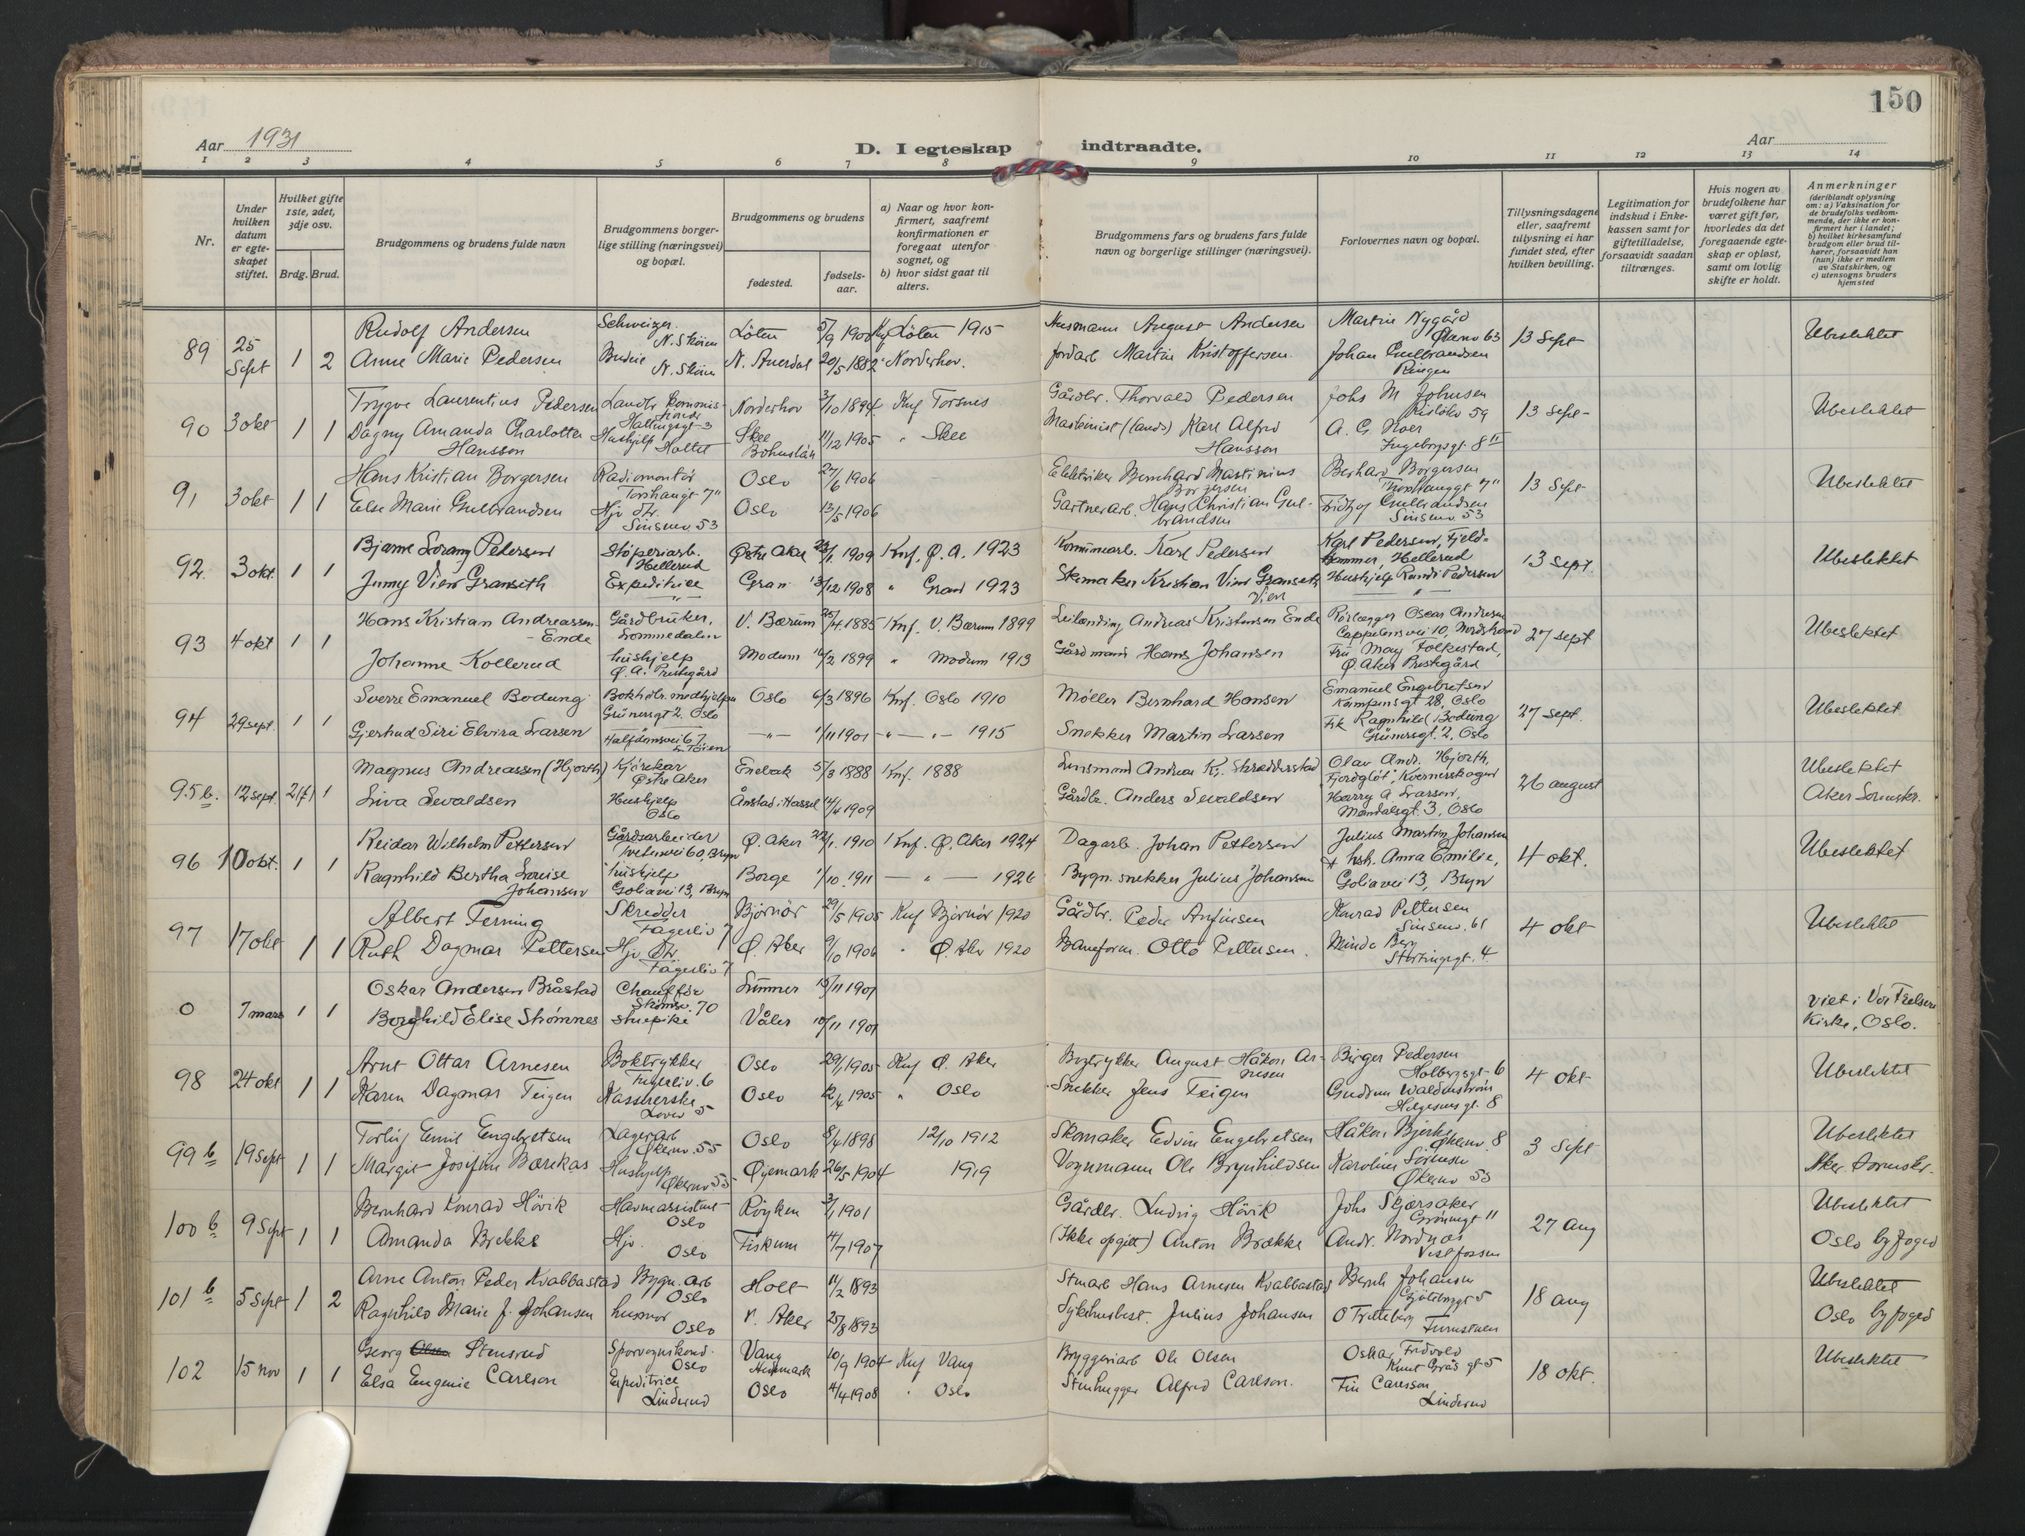 150
Aar 1931
D. I egteskap indtraadte.
Aar
1 2 3 4 5 6 7 8 9 10 11 12 13 14
Nr.
Under hvilken datum er egteskapet stiftet.
Hvilket gifte 1ste, 2det, 3dje osv.
Brdg. Brud.
Brudgommens og brudens fulde navn
Brudgommens borgerlige stilling (næringsvei) og bopæl.
Brudgommens og brudens
fødested.
fødselsaar.
a) Naar og hvor konfirmert, saafremt konfirmationen er foregaat utenfor sognet, og
b) hvor sidst gaat til alters.
Brudgommens fars og brudens fars fulde navn og borgerlige stillinger (næringsvei).
Forlovernes navn og bopæl.
Tillysningsdagene eller, saafremt tillysning ei har fundet sted, efter hvilken bevilling.
Legitimation for indskud i Enkekassen samt for giftetilladelse, forsaavidt saadan tiltrænges.
Hvis nogen av brudefolkene har været gift før, hvorledes da det foregaaende egteskap er opløst, samt om lovlig skifte er holdt.
Anmerkninger (deriblandt oplysning om: a) Vaksination for de brudefolks vedkommende, der ikke er konfirmert her i landet; b) hvilket kirkesamfund brudgom eller brud tilhører, forsaavidt han (hun) ikke er medlem av Statskirken, og c) utensogns bruders hjemsted
89 25 Sept 1 2 Rudolf Andersen Schweizer N. Skøien Løten 5/9 1900 Løten 1915 Husmann August Andersen Martin Nygård 63 13 Sept Ubeslektet
Anne Marie Pedersen Budeie N. Skøien N. Aurdal 20/5 1882 Norderhov. Jordarb Martin Kristoffersen Johan Gulbrandsen Ringen
90 3 okt 1 1 Trygve Laurentius Pedersen Landbr. Hallingsgt 3 Norderhov 3/10 1894 Knf Torsnes Gårdbr. Thorvald Pedersen Johs M Johnsen 59 13 Sept Ubeslektet
Dagny Amanda Charlotte Hansson Hushjelp Holtet Skee Bohuslän 11/12 1905 " Skee Maskinist (lands) Karl Alfred Hansson A. G. Noer Ingeborgsgt. 8 II
91 3 okt 1 1 Hans Kristian Borgersen Radiomontør Torshaugt 7 II Oslo 27/6 1906 Elektriker Bernhard Martinius Borgersen Berhard Borgersen Torshauggt 7 II 13 Sept Ubeslektet
Else Marie Gulbrandsen Hjv dtr. Sinsenv 53 Oslo 13/5 1906 Gartnerarb. Hans Christian Gulbrandsen Fridtjof Gulbrandsen Sinsenv 53
92. 3 okt. 1 1 Bjarne Pedersen Støperiarb. Hellerud Østre Aker 23/1 1909 Knf. Ø. A. 1923 Kommunearb. Karl Pedersen Karl Pedersen, Fjeldhammer, Hellerud 13 sept. Ubeslektet
Jenny Vien Granseth Expeditrice Gran 13/12 1908 " Gran 1923 Skomaker Kristian Vien Granseth Hushjelp Randi Pedersen
93 4 okt 1 1 Hans Kristian Andreassen Ende Gårdbruker, Lommedalen V. Bærum 25/4 1885 Knf. V. Bærum 1899 Leilending Andreas Kristensen Ende Rørlegger Oscar Andresen Cappelensvei 10, Nordstrand 27 sept Ubeslektet
Johanne Kollerud hushjelp Ø. A. Prestegård Modum 16/2 1899 " Modum 1913 Gårdmann Hans Johansen Fru May Folkestad, Ø. Aker Prestegård
94 29 sept. 1 1 Sverre Emanuel Bodung Bokholdermedhjelper Grünersgt 2, Oslo Oslo 6/3 1896 Knf. Oslo 1910 Møller Bernhard Hansen Emanuel Engebretsen Kampensgt 28, Oslo 27 sept. Ubeslektet
Gjerhud Siri Elvira Larsen Halfdansvei 67 Tøien " 1/11 1901 " " 1915 Snekker Martin Larsen Frk Ragnhild Bodung Grünersgt. 2, Oslo
95 b. 12 sept. 2(f) 1 Magnus Andreassen (Hjorth) Kjørekar Østre Aker Enebak 5/3 1888 Knf. 1888 Lensmand Andreas Kr. Skredderstad Olav And. Hjorth, 26 august Ubeslektet
Liva Sevaldsen Hushjelp Oslo Ånstad i Hassel 12/4 1909 Gårdbr. Anders Sevaldsen Harry A Larsen, Mandalsgt. 3, Oslo Aker
96 10 okt. 1 1 Reidar Wilhelm Pettersen Gårdsarbeider Tvetenvei 60, Bryn Ø. Aker 22/1 1910 Knf. Ø. Aker 1924 Dagarb. Johan Pettersen Julius Martin Johansen 4 okt. Ubeslektet
Ragnhild Bertha Louise Johansen hushjelp Goliavei 13, Bryn Borge 1/10 1911 " 1926 Bygn. snekker Julius Johansen + hsh. Anna Emilie, Goliavei 13, Bryn
97 17 okt 1 1 Albert Ferning Skredder Fagerliv 7 Bjørnør 29/5 1905 Knf Bjørnør 1920 Gårdbr. Peder Anfinsen Konrad Pettersen Sinsenv. 61 4 okt Ubeslektet
Ruth Dagmar Pettersen Hjv dtr. Fagerliv 7 Ø. Aker 9/10 1906 " Ø. Aker 1920 Baneform. Otto Pettersen. Minda Berg Stortingsgt. 4.
0 7 mars 1 1 Oskar Andersen Bråstad Chauffør 70 15/11 1901 viet i Vor Frelsers
Borghild Elise Strømnes stuepike Våler 10/11 1901 Kirke, Oslo.
98 24 okt 1 1 Arnt Ottar Arnesen Boktrykker Fagerliv. 6 Oslo 29/1 1905 Knf Ø. Aker Boktrykker August Håkon Arnesen Birger Pedersen Holbergsgt 6 4 okt Ubeslektet
Karen Dagmar Teigen Kassererske 5 Oslo 2/4 1905 " Oslo Snekker Jens Teigen Gudrun Waldenstrøm Helgesens gt. 8
99 b 19 Sept 1 1 Emil Engebretsen Lagerarb Økernv 55 Oslo 8/4 1898 12/10 1912 Skomaker Edvin Engebretsen Håkon Bjerke Økernv. 8 3 Sept Ubeslektet
Margit Josefine Bærekas Hushjelp Økernv 55 Øymark 26/5 1904 1919 Vognmann Ole Brynhildsen Karoline Sørensen Økernv 53 Aker
100 b 9 Sept 1 1 Bernhard Konrad Høvik Havneassistent Oslo Røyken 3/1 1901 Gårdbr. Ludvig Høvik Johs Skjærsaker Grønnegt 11 27 aug Ubeslektet
Amanda Brekke Hjv. Oslo Fiskum 4/7 1907 (Ikke opgitt) Anton Brække Andr. Nordnæs Vestfossen Oslo byfoged
101 b 5 Sept 1 2 Arne Anton Peder Kvabbastad Bygn. arb Oslo Holt 11/2 1893 Hans Arnesen Kvabbastad Bernh Johansen 5 18 aug Ubeslektet
Ragnhild Marie f. Johansen husmor Oslo V. Aker 25/8 1893 Julius Johansen Oslo byfoged
102 15 nov 1 1 Georg Olsen Stensrud Sporvognskond. Oslo Vang Hedmark 10/9 1904 Knf Vang Bryggeriarb Ole Olsen Oskar Knut 5 18 okt. Ubeslektet
Elsa Eugenie Carlson Expeditrice Linderud Oslo 4/4 1908 " Oslo Stenhugger Alfred Carlson. Carlsson Linderud